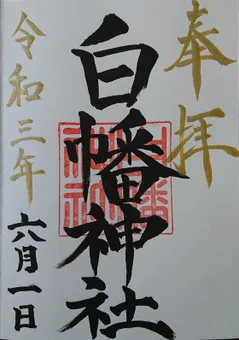 奉拝
白幡神社
令和三年
六月一日